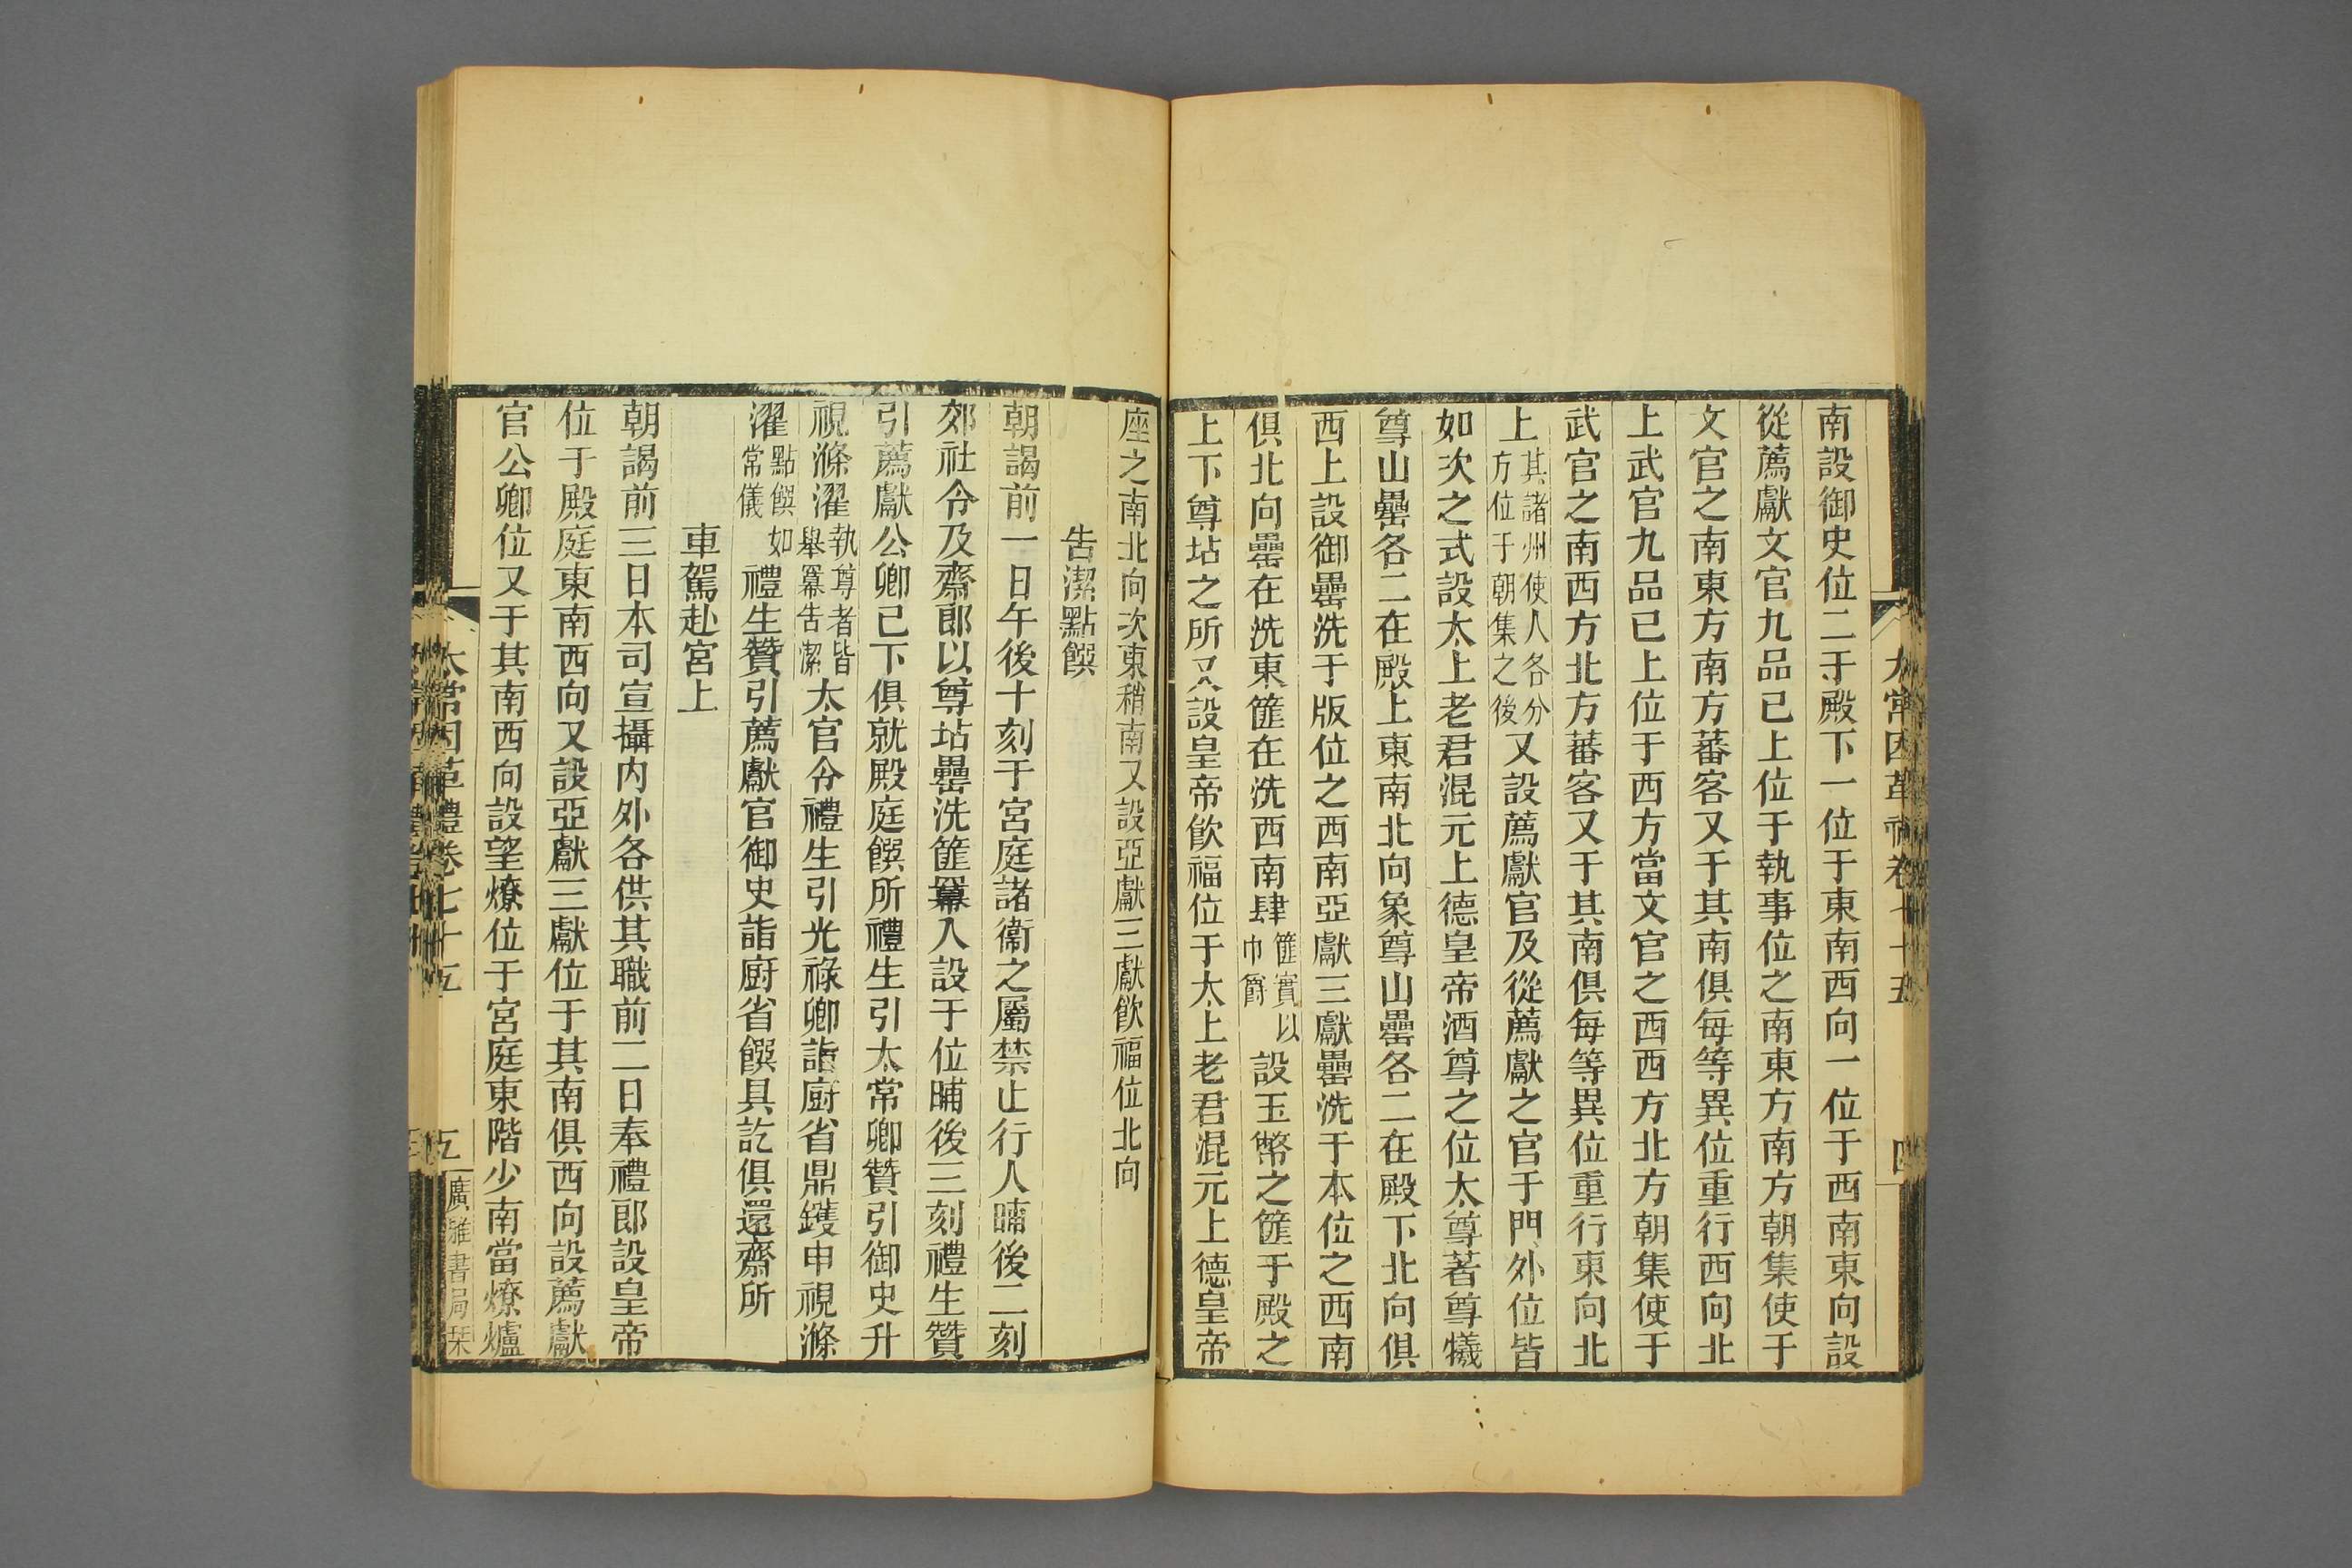 南設御史位二于殿下一位于東南西向一位于西南東向設
從薦獻文官九品已上位于執事位之南東方南方朝集使于
文官之南東方南方蕃客又于其南俱每等異位重行西向北
上武官九品已上位于西方當文官之西西方北方朝集使于
武官之南西方北方蕃客又于其南俱每等異位重行東向北
上其諸州使人各分方位于朝集之後又設薦獻官及從薦獻之官于門外位皆
如次之式設太上老君混元上德皇帝酒尊之位太尊著尊犧
尊山罍各二在殿上東南北向象尊山罍各二在殿下北向俱
西上設御罍洗于版位之西南亞獻三獻罍洗于本位之西南
俱北向罍在洗東篚在洗西南肆篚實以巾爵設玉幣之篚于殿之
上下尊坫之所又設皇帝飲福位于太上老君混元上德皇帝
太常因革禮卷七十五
四
座之南北向次東稍南又設亞獻三獻飲福位北向
告潔點饌
朝謁前一日午後十刻于宮庭諸衞之屬禁止行人晡後二刻
郊社令及齋郎以尊坫罍洗篚冪入設于位晡後三刻禮生贊
引薦獻公卿已下俱就殿庭饌所禮生引太常卿贊引御史升
視滌濯執尊者皆舉冪告潔太官令禮生引光祿卿詣廚省鼎鑊申視滌
濯點饌如常儀禮生贊引薦獻官御史詣廚省饌具訖俱還齋所
車駕赴宮上
朝謁前三日本司宣攝内外各供其職前二日奉禮郎設皇帝
位于殿庭東南西向又設亞獻三獻位于其南俱西向設薦獻
官公卿位又于其南西向設望燎位于宮庭東階少南當燎爐
太常因革禮卷七十五
五
廣雅書局栞